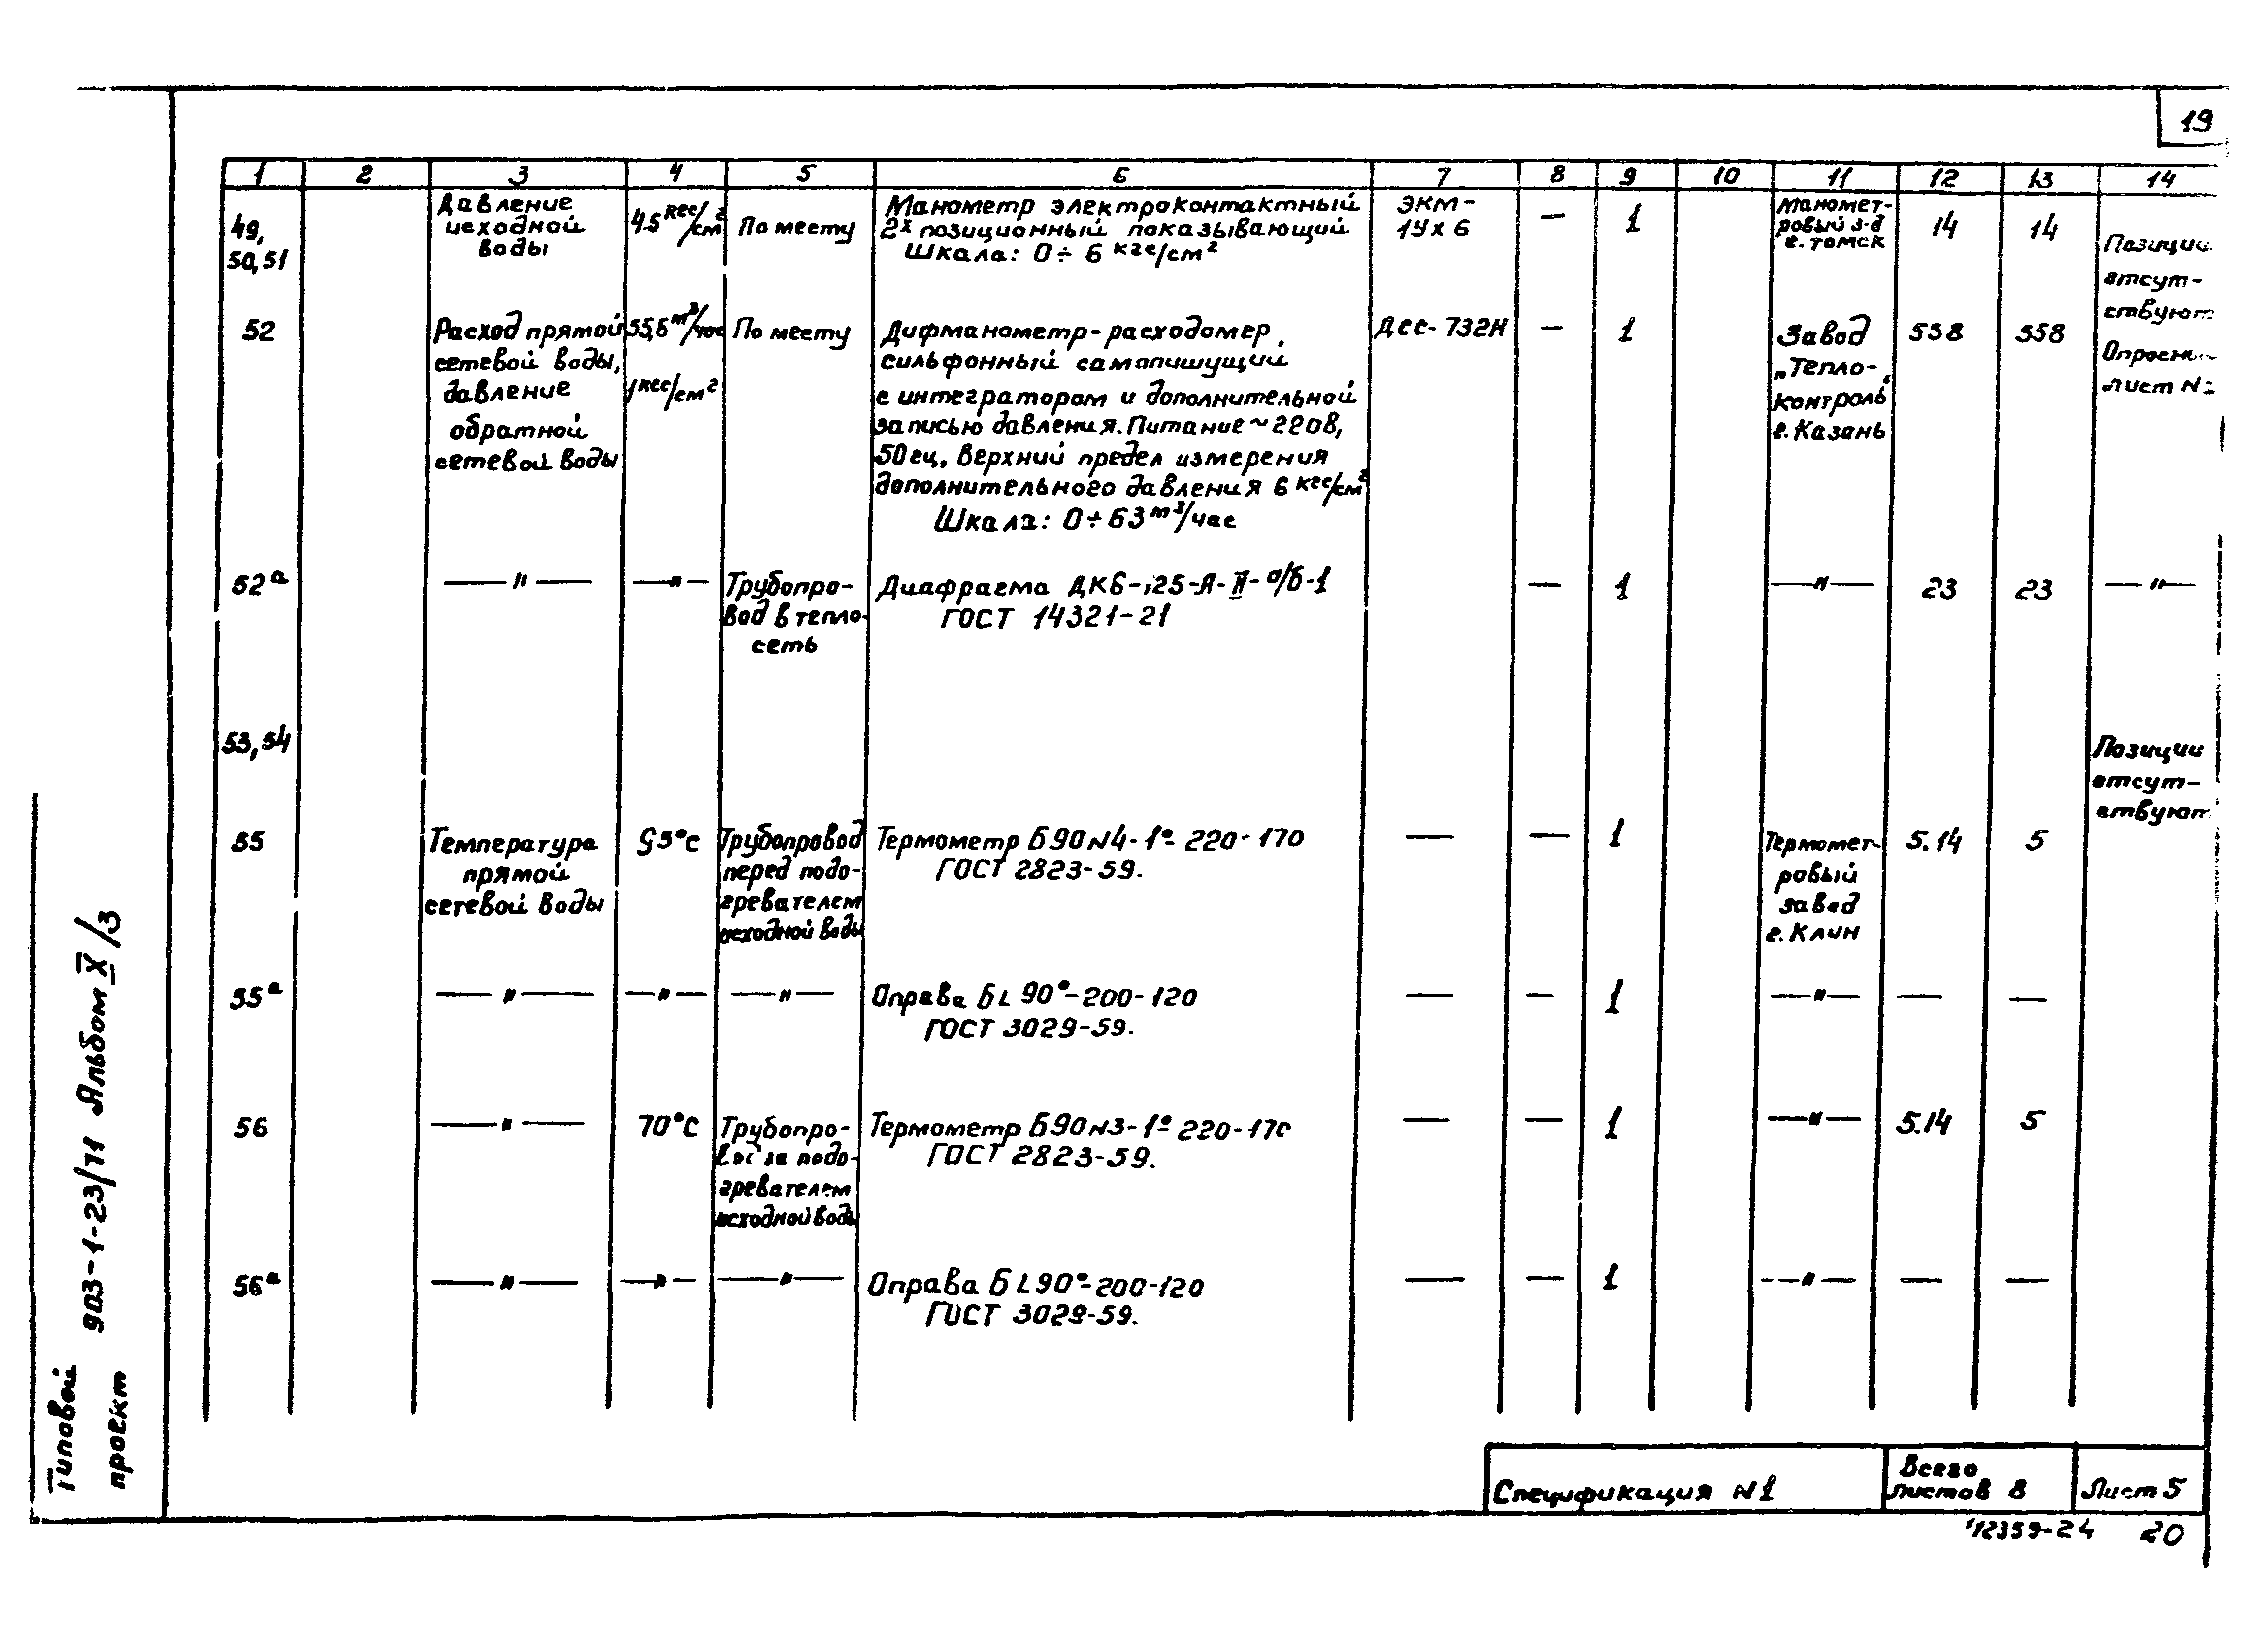 19
1 2 3 4 5 6 7 8 9 10 11 12 13 14
49,
50,51
Давление
исходной
воды
4.5 кгс/см²
По месту
Манометр электроконтактный
2х позиционный показывающий
Шкала: 0÷6 кгс/см²
ЭКМ-
1Ух6
—
1
Маномет-
ровый з-д
г. Томск
14
14
Позиции
отсут-
ствуют
52
Расход прямой
сетевой воды,
давление
обратной
сетевой воды
55,6 м³/час
1 кгс/см²
По месту
Дифманометр-расходомер,
сильфонный самопишущий
с интегратором и дополнительной
записью давления. Питание ~220в,
50гц. Верхний предел измерения
дополнительного давления 6 кгс/см²
Шкала: 0÷63 м³/час
ДСС-732Н
—
1
Завод
„Тепло-
контроль"
г. Казань
558
558
лист №
52а
—"—
—"—
Трубопро-
вод в тепло-
сеть
Диафрагма ДК6-125-А-II-а/б-1
ГОСТ 14321-21
—
1
—"—
23
23
—"—
53,54
Позиции
отсут-
ствуют
55
Температура
прямой
сетевой воды
95°С
Трубопровод
перед подо-
гревателем
исходной воды
Термометр Б90№4-1°-220-170
ГОСТ 2823-59.
—
—
1
Термомет-
ровый
завод
г. Клин
5.14
5
55а
—"—
—"—
—"—
Оправа БL 90°-200-120
ГОСТ 3029-59.
—
—
1
—"—
—
—
56
—"—
70°С
Трубопро-
вод за подо-
гревателем
исходной воды
Термометр Б90№3-1°-220-170
ГОСТ 2823-59.
—
—
1
—"—
5.14
5
56а
—"—
—"—
—"—
Оправа БL90°-200-120
ГОСТ 3029-59.
—
—
1
—"—
—
—
Типовой
проект
903-1-23/71 Альбом X/3
Спецификация №1
Всего
листов 8
Лист 5
12359-24 20